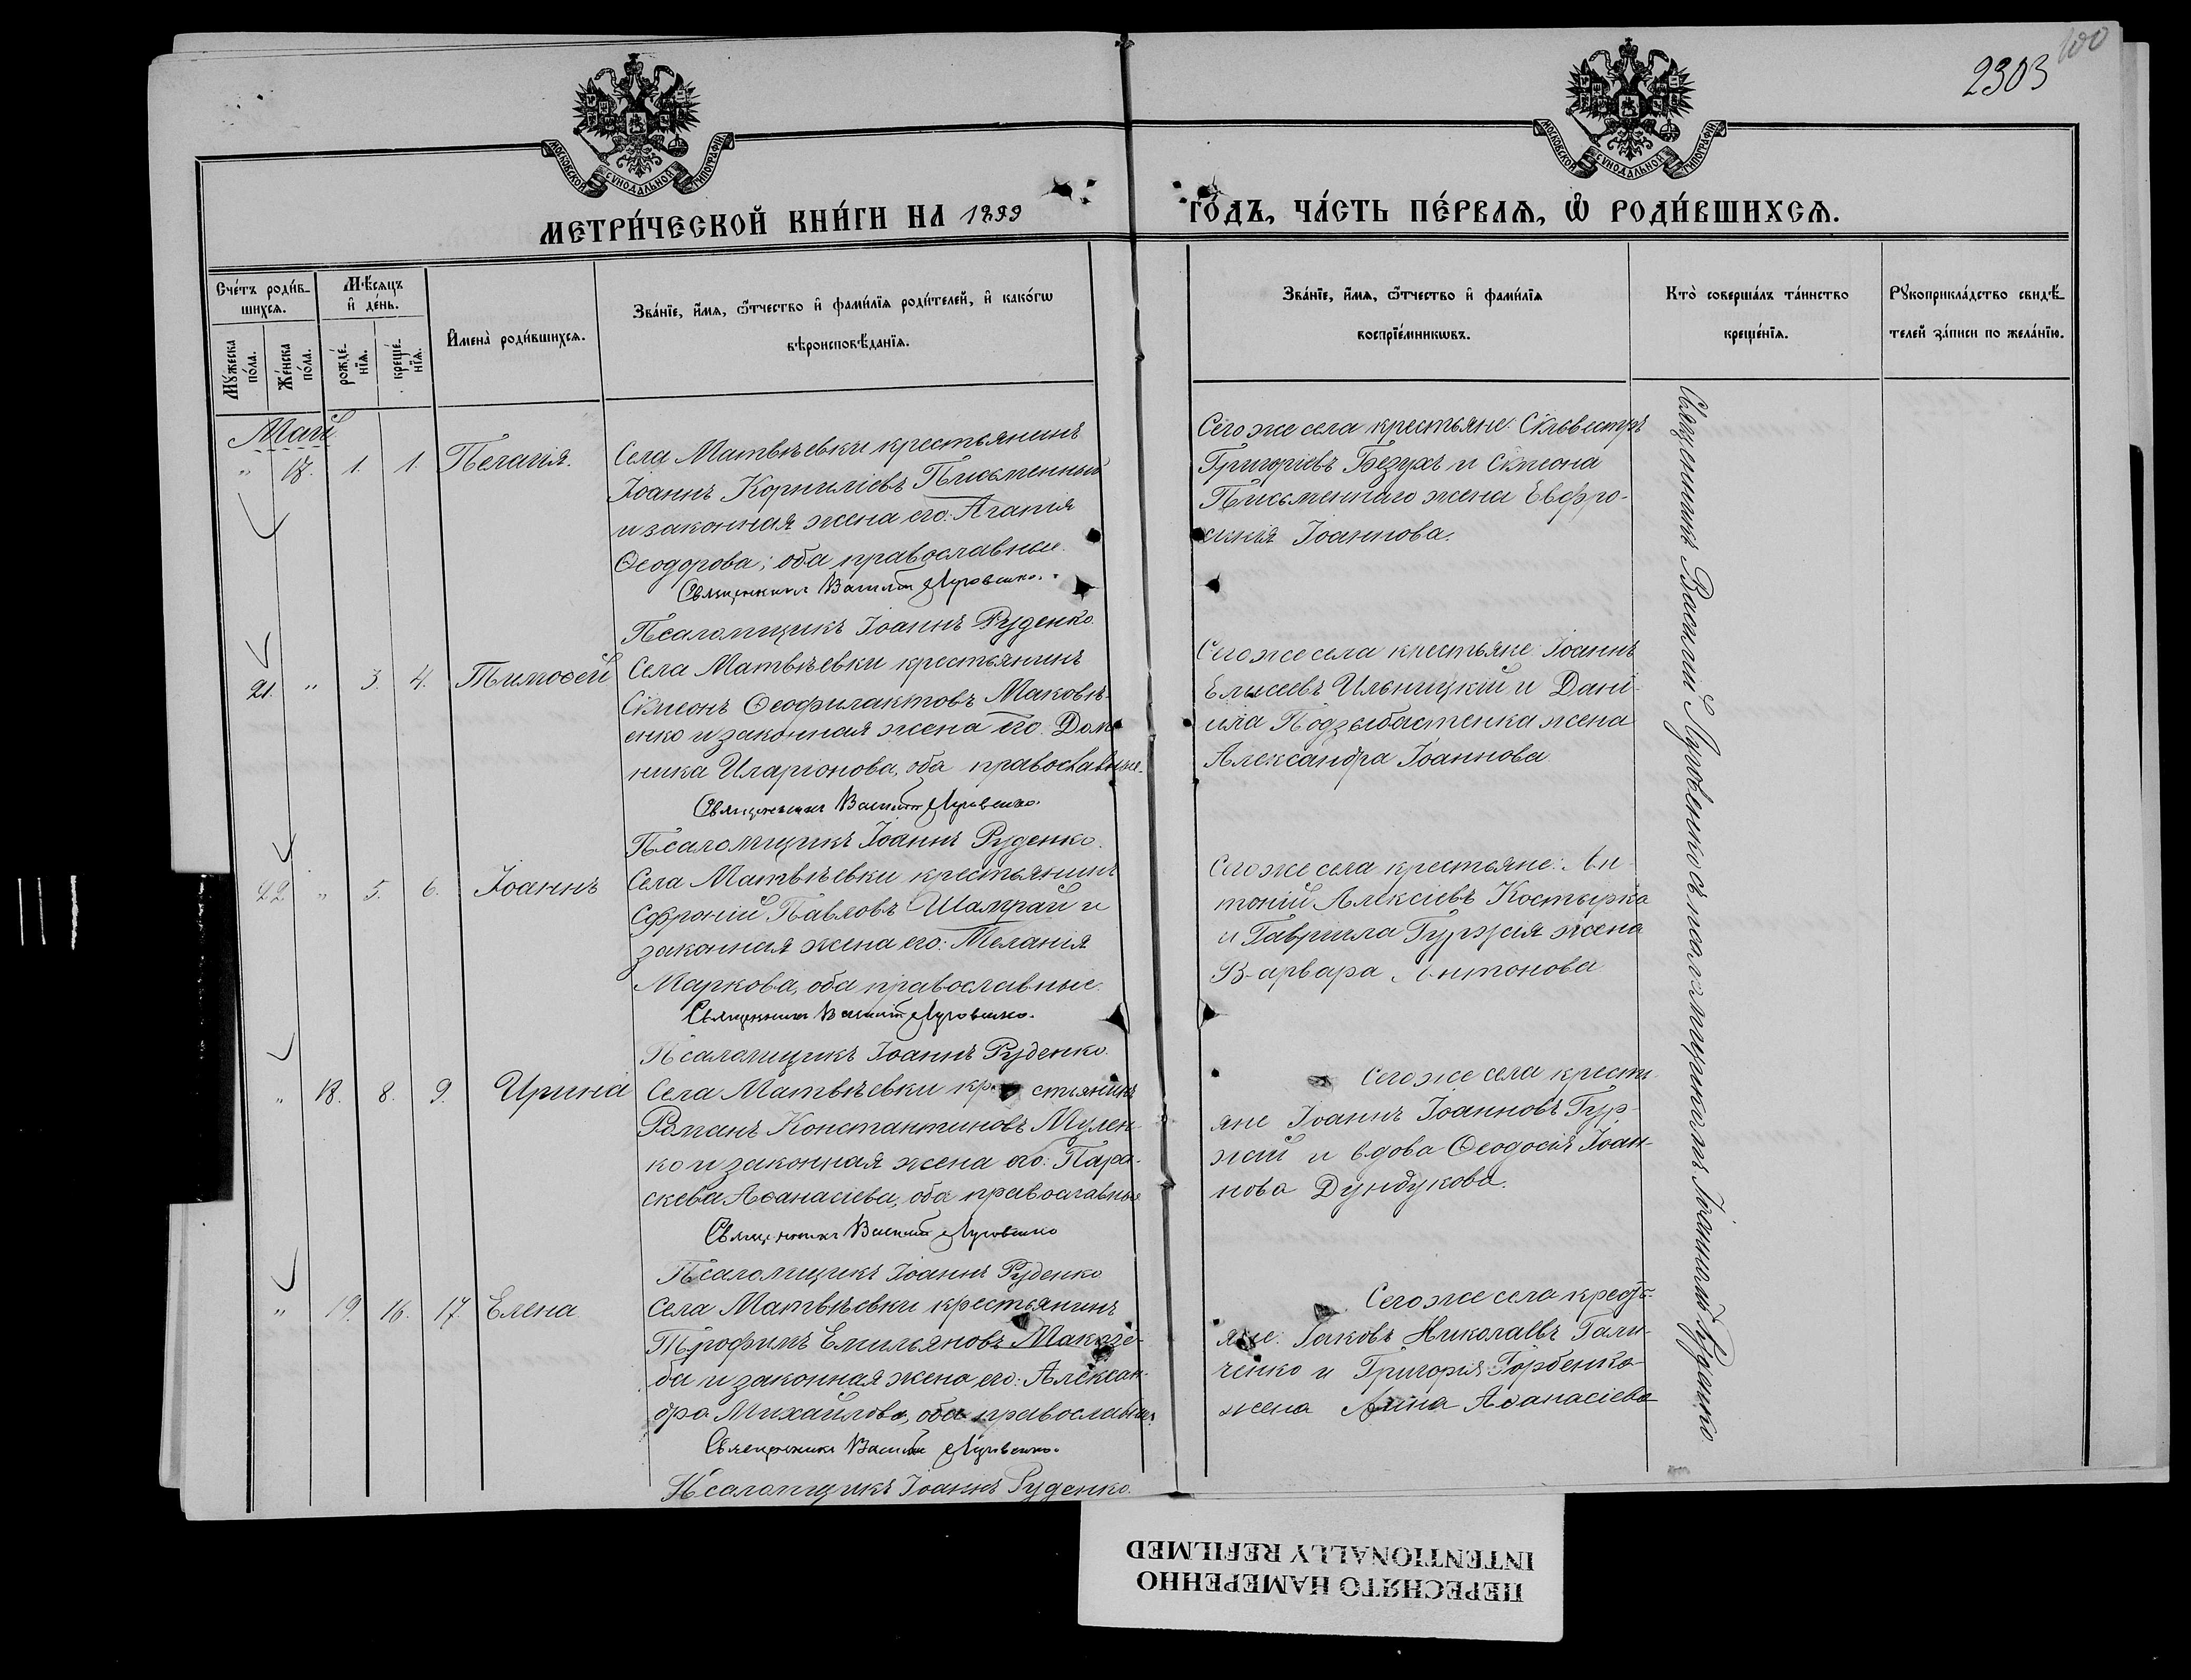 100
2303
МОСКОВСКОЙ СѴНОДАЛЬНОЙ ТИПОГРАФІИ
МОСКОВСКОЙ СѴНОДАЛЬНОЙ ТИПОГРАФІИ
МЕТРИ́ЧЕСКОЙ КНИ́ГИ НА 1899
ГО́ДЪ, ЧА́СТЬ ПЕ́РВАѦ, Ѽ РОДИ́ВШИХСѦ.
Сче́тъ роди́в-
шихсѧ.
Мѣ́сѧцъ
и҆ де́нь.
Мꙋ́жеска
по́ла.
Же́нска
по́ла.
рожде́-
нїѧ.
креще́-
нїѧ.
И҆мена̀ роди́вшихсѧ.
Зва́нїе, и҆́мѧ, ѻ҆́тчество и҆ фами́лїѧ роди́телей, и҆ како́гѡ
вѣроисповѣ́данїѧ.
Зва́нїе, и҆́мѧ, ѻ҆́тчество и҆ фами́лїѧ
воспрїе́мникѡвъ.
Кто̀ соверша́лъ та́инство
креще́нїѧ.
Рꙋкоприкла́дство свидѣ́-
телей за́писи по жела́нїю.
Май
" 17. 1. 1. Пелагія.
Села Матвѣевки крестьянинъ
Іоаннъ Корниліевъ Письменный
и законная жена его: Агапія
Ѳеодорова; оба православные.
Священникъ Василій Луговенко.
Псаломщикъ Іоаннъ Руденко.
Сего же села крестьяне: Сильвестръ
Григоріевъ Безухъ и Симеона
Письменнаго жена Евфро-
синія Іоаннова.
21. " 3. 4. Тимоѳей
Села Матвѣевки крестьянинъ
Симеонъ Ѳеофилактовъ Маковѣ-
енко и законная жена его: Дом-
ника Иларіонова, оба православные.
Священникъ Василій Луговенко.
Псаломщикъ Іоаннъ Руденко.
Сего же села крестьяне: Іоаннъ
Елисеевъ Ильницкій и Дані-
ила Подзыбастенка жена
Александра Іоаннова.
22 " 5. 6. Іоаннъ
Села Матвѣевки крестьянинъ
Софроній Павловъ Шамрай и
законная жена его: Меланія
Маркова, оба православные.
Священникъ Василій Луговенко.
Псаломщикъ Іоаннъ Руденко.
Сего же села крестьяне: Ан-
тоній Алексіевъ Костырка
и Гавріила Гуржія жена
Варвара Антонова.
" 18. 8. 9. Ирина
Села Матвѣевки крестьянинъ
Романъ Константиновъ Мулен-
ко и законная жена его: Пара-
скева Аѳанасіева, оба православные
Священникъ Василій Луговенко
Псаломщикъ Іоаннъ Руденко
Сего же села кресть-
яне Іоаннъ Іоанновъ Гур-
жій и вдова Ѳеодосія Іоан-
нова Дундукова.
" 19. 16. 17. Елена
Села Матвѣевки крестьянинъ
Трофимъ Емильяновъ Макозе-
ба и законная жена его: Алексан-
дра Михайлова, оба православные.
Священникъ Василій Луговенко.
Псаломщикъ Іоаннъ Руденко.
Сего же села кресть-
яне: Іаковъ Николаевъ Гали-
ченко и Григорія Горбенка
жена Анна Аѳанасіева
Священникъ Василій Луговенко съ псаломщикомъ Іоанномъ Руденко.
ПЕРЕСНЯТО НАМЕРЕННО
INTENTIONALLY REFILMED